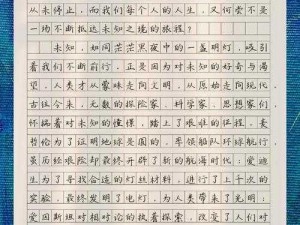 从未停止，而我们每个人的人生，又何尝不是
一场不断抵达未知之境的旅程？
未知，如同茫茫黑夜中的一盏明灯，吸引
着我们不断前行，正是因为对未知的好奇与渴
望，人类才从蒙昧走向文明，从原始走向现代。
古往今来，无数的探险家、科学家、思想家们
怀揣着对未知的憧憬，踏上了艰难的征程。麦
哲伦为了证明地球是圆的，率领船队环球航行，
虽历经艰险却最终开辟了新的航海时代；爱迪
生为了寻找合适的灯丝材料，进行了上千次的
实验，最终发明了电灯，为人类带来了光明；
爱因斯坦对相对论的执着探索，改变了人们对